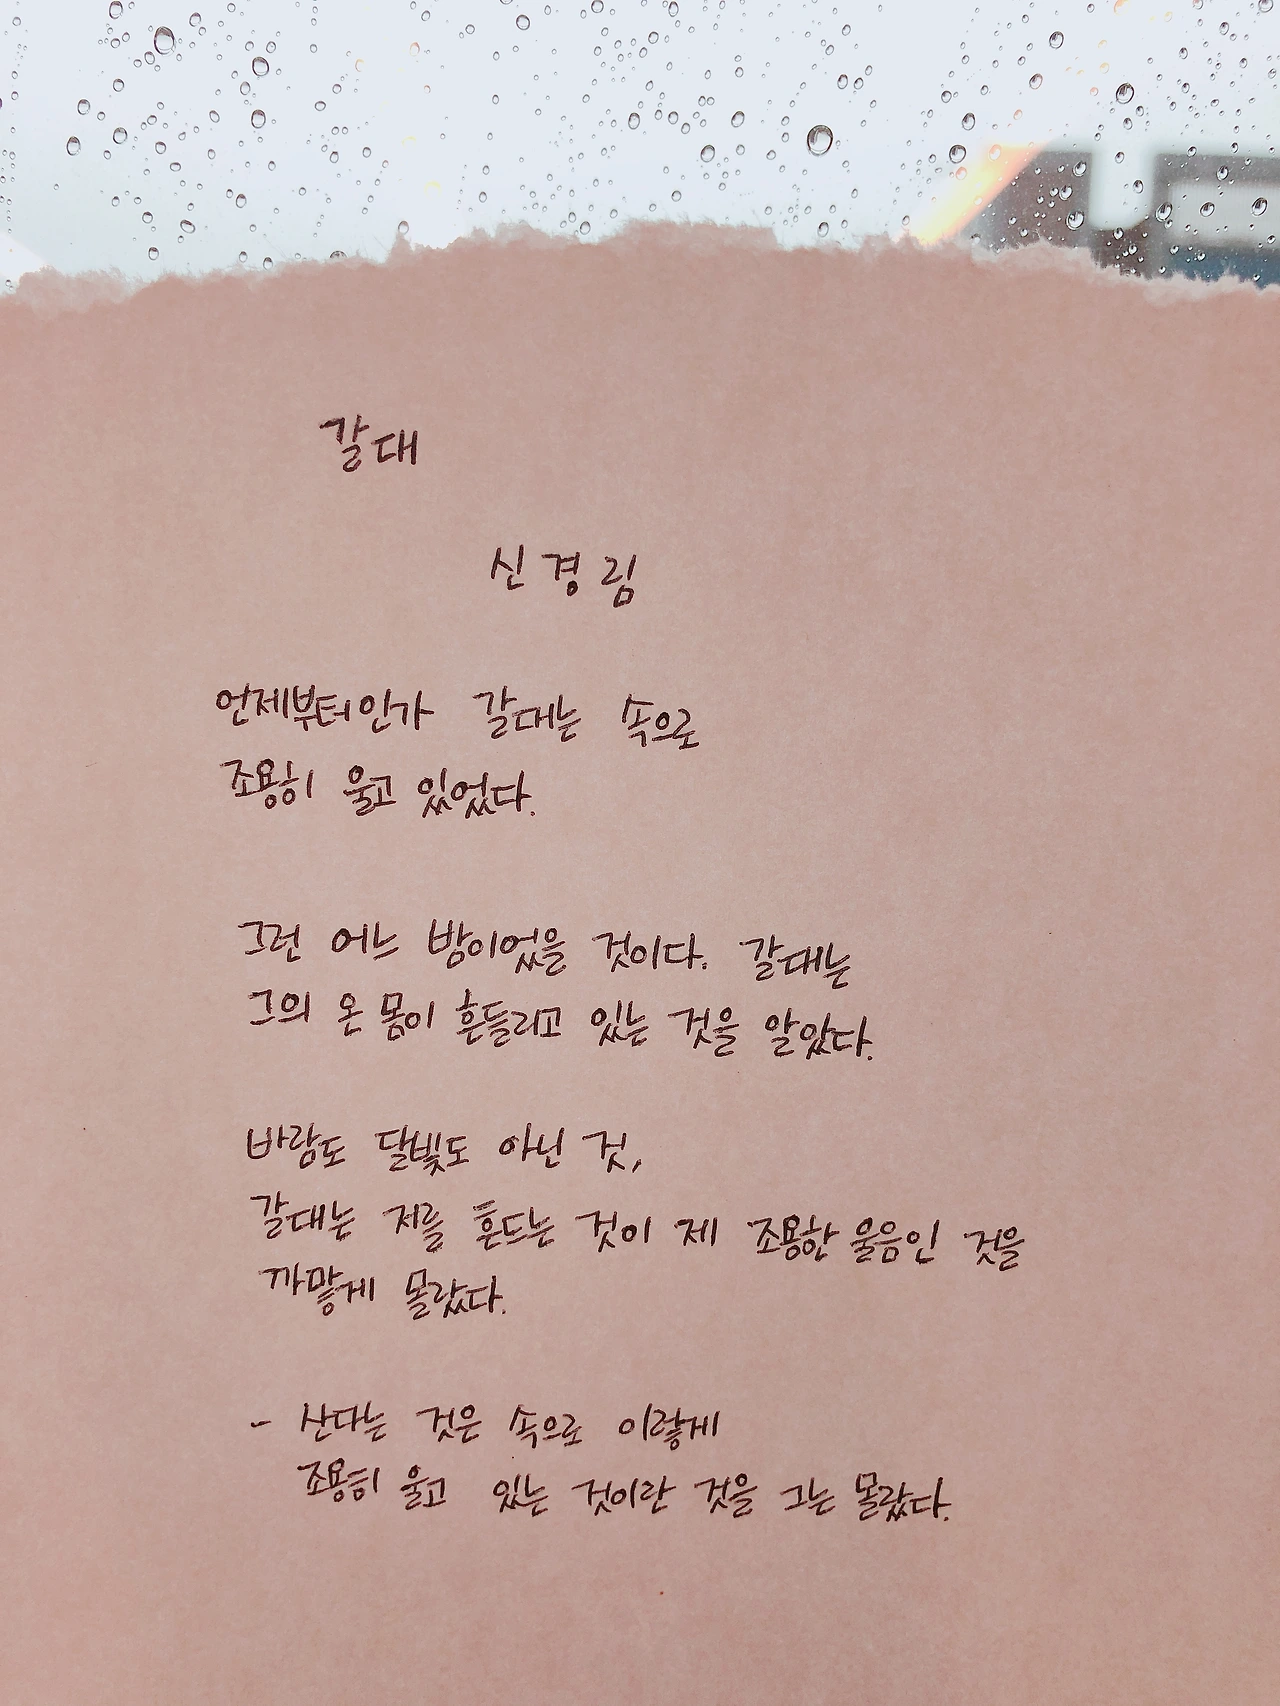 갈대
신경림
언제부터인가 갈대는 속으로
조용히 울고 있었다.
그런 어느 밤이었을 것이다. 갈대는
그의 온 몸이 흔들리고 있는 것을 알았다.
바람도 달빛도 아닌 것,
갈대는 저를 흔드는 것이 제 조용한 울음인 것을
까맣게 몰랐다.
- 산다는 것은 속으로 이렇게
조용히 울고 있는 것이란 것을 그는 몰랐다.